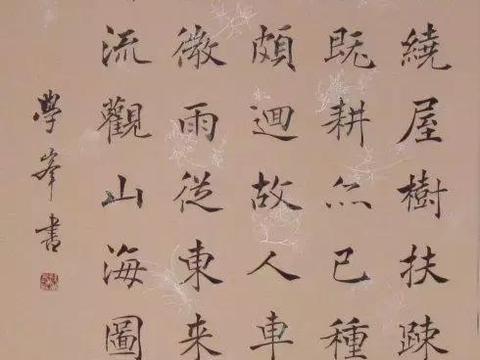 繞屋樹扶疎
既耕亦已種
頗迴故人車
微雨從東来
流觀山海圖
學峯書